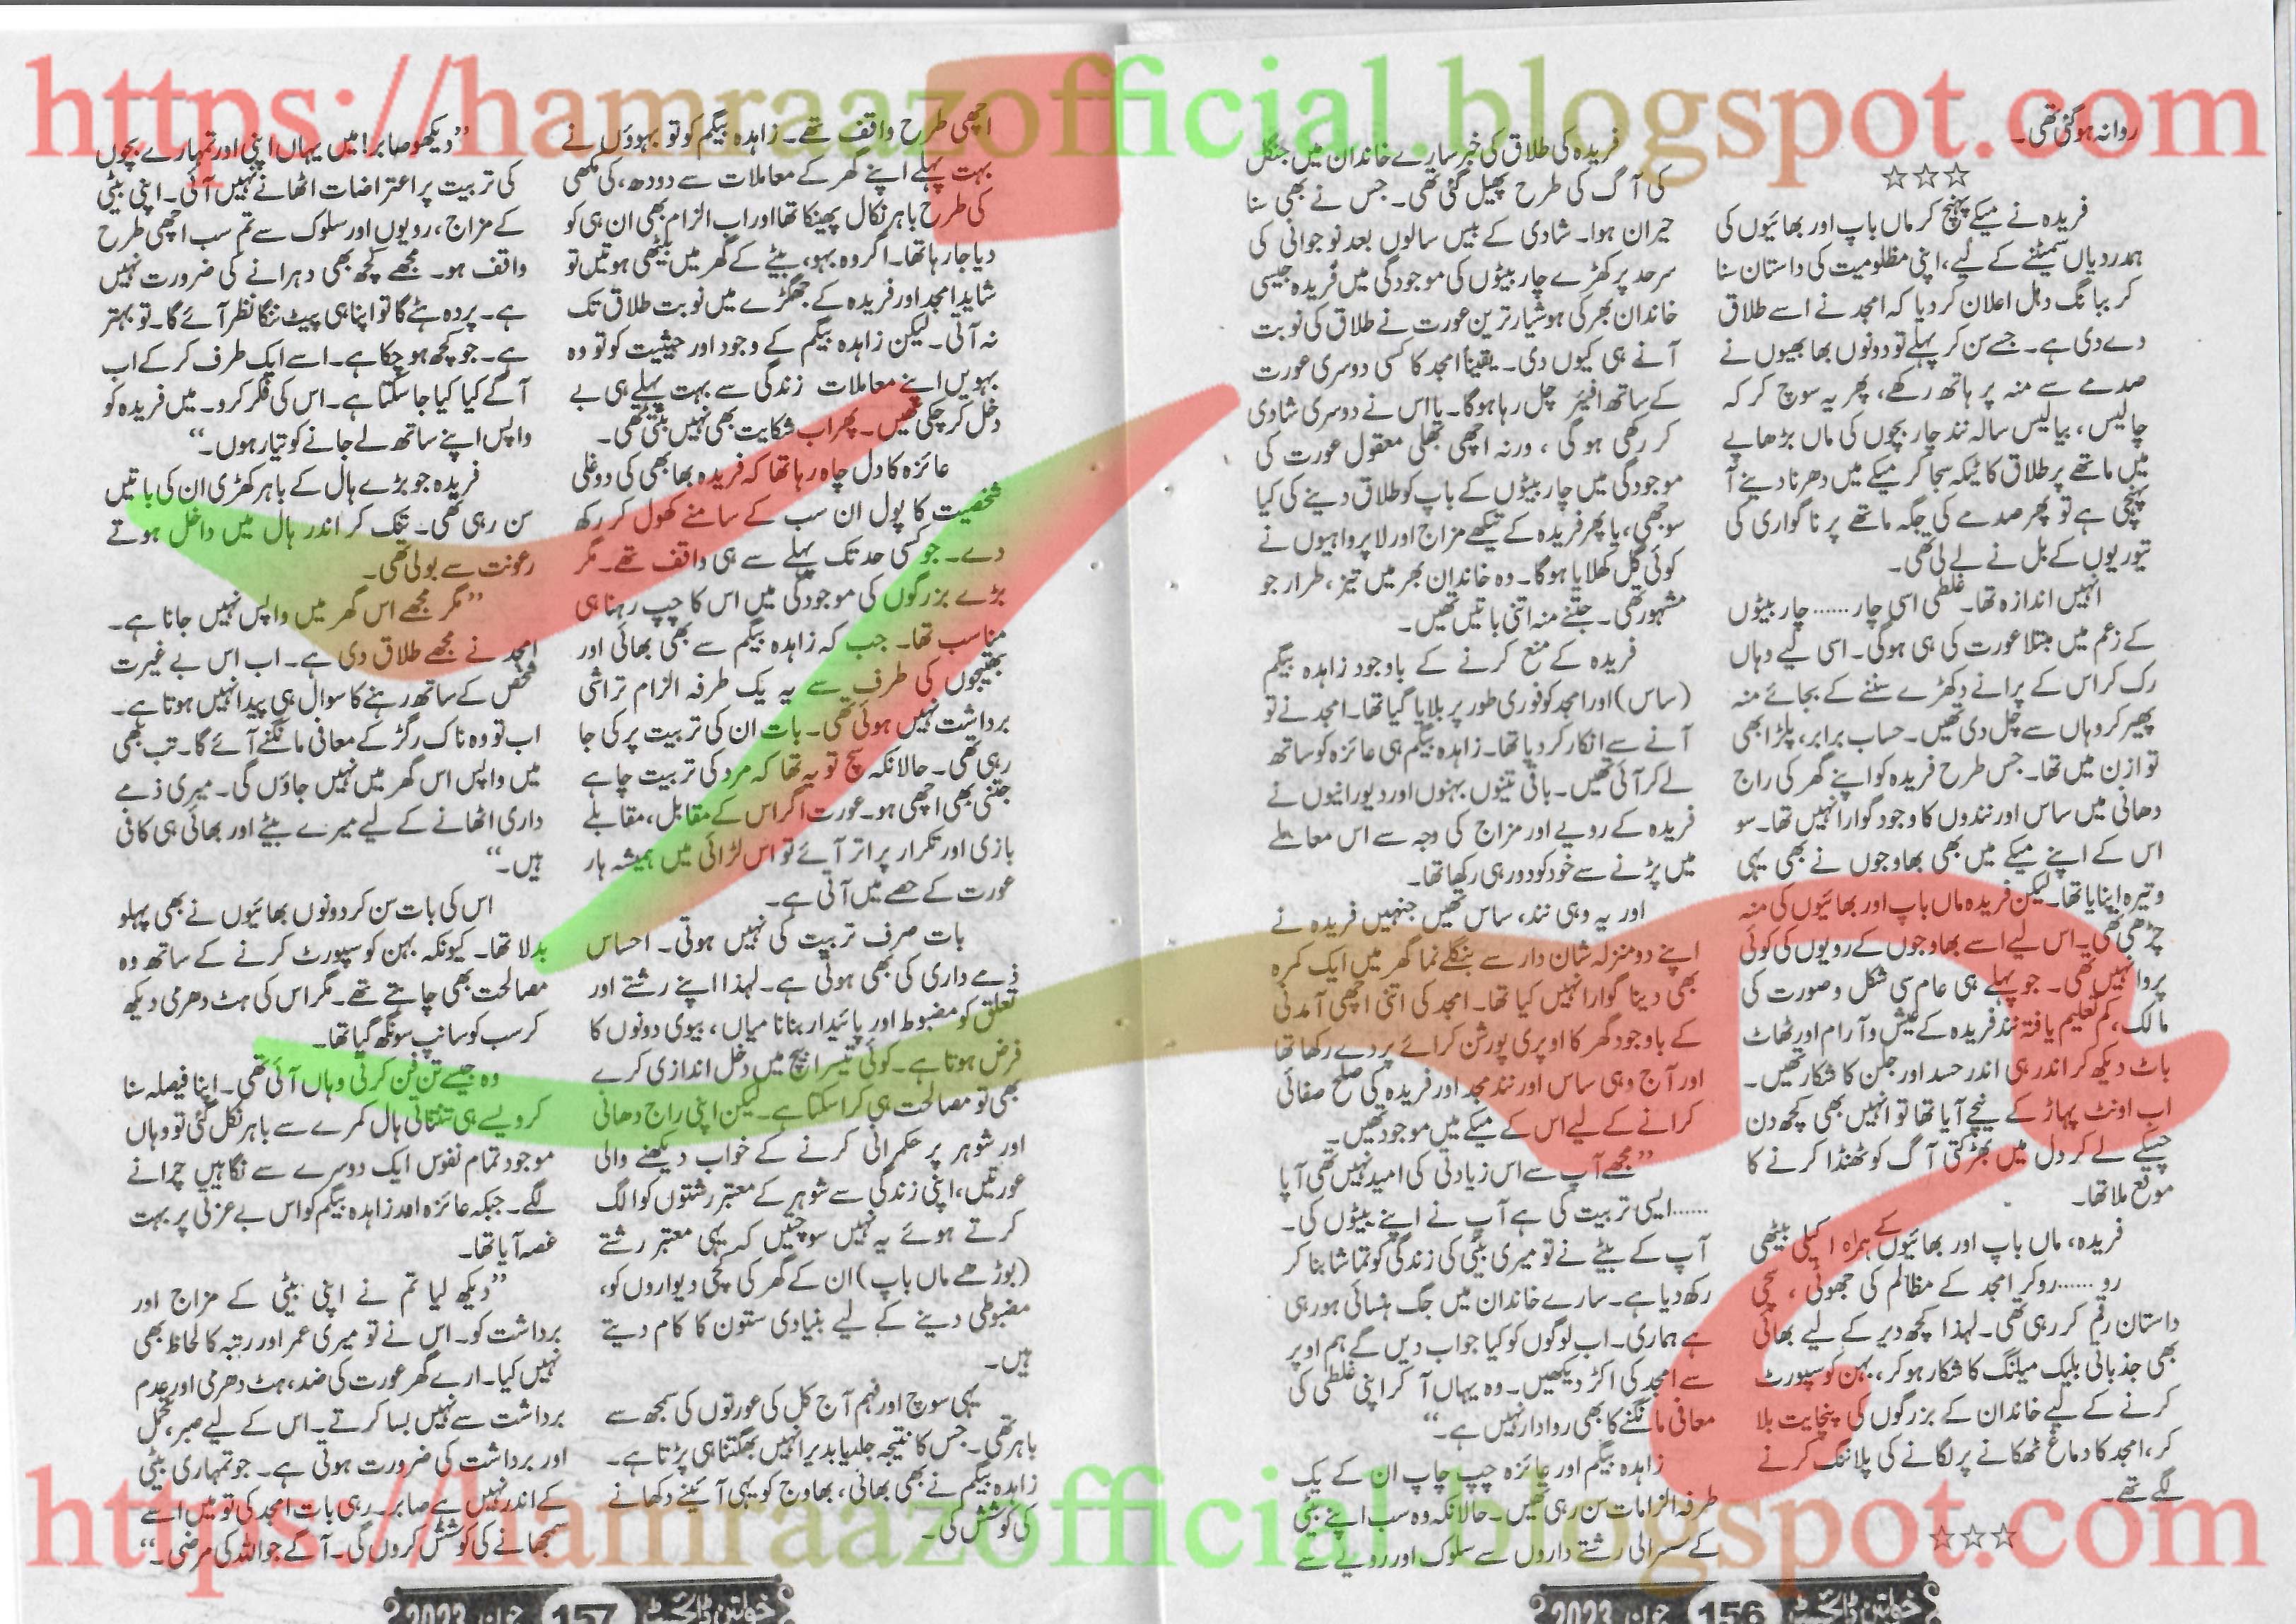 https://hamraazofficial.blogspot.com
روانہ ہوگئی تھی۔
☆☆☆
فریدہ نے میکے پہنچ کر ماں باپ اور بھائیوں کی
ہمدردیاں سمیٹنے کے لیے، اپنی مظلومیت کی داستان سنا
کر ببانگ دہل اعلان کردیا کہ امجد نے اسے طلاق
دے دی ہے۔ جسے سن کر پہلے تو دونوں بھابھیوں نے
صدمے سے منہ پر ہاتھ رکھے، پھر یہ سوچ کر کہ
چالیس، بیالیس سالہ نند چار بچوں کی ماں بڑھاپے
میں ماتھے پر طلاق کا ٹیکہ سجا کر میکے میں دھرنا دینے آ
پہنچی ہے تو پھر صدمے کی جگہ ماتھے پر ناگواری کی
تیوریوں کے بل نے لے لی تھی۔
انہیں اندازہ تھا۔ غلطی اسی چار...... چار بیٹوں
کے زعم میں مبتلا عورت کی ہی ہوگی۔ اسی لیے وہاں
رک کر اس کے پرانے دکھڑے سننے کے بجائے منہ
پھیر کر وہاں سے چل دی تھیں۔ حساب برابر، پلڑا بھی
توازن میں تھا۔ جس طرح فریدہ کو اپنے گھر کی راج
دھانی میں ساس اور نندوں کا وجود گوارا نہیں تھا۔ سو
اس کے اپنے میکے میں بھی بھاوجوں نے بھی یہی
وتیرہ اپنایا تھا۔ لیکن فریدہ ماں باپ اور بھائیوں کی منہ
چڑھی تھی۔ اس لیے اسے بھاوجوں کے رویوں کی کوئی
پروا نہیں تھی۔ جو پہلے ہی عام سی شکل و صورت کی
مالک، کم تعلیم یافتہ نند فریدہ کے عیش و آرام اور ٹھاٹ
باٹ دیکھ کر اندر ہی اندر حسد اور جلن کا شکار تھیں۔
اب اونٹ پہاڑ کے نیچے آیا تھا تو انہیں بھی کچھ دن
چسکے لے کر دل میں بھڑکتی آگ کو ٹھنڈا کرنے کا
موقع ملا تھا۔
فریدہ، ماں باپ اور بھائیوں کے ہمراہ اکیلی بیٹھی
رو...... رو کر امجد کے مظالم کی جھوٹی، سچی
داستان رقم کر رہی تھی۔ لہٰذا کچھ دیر کے لیے بھائی
بھی جذباتی بلیک میلنگ کا شکار ہو کر، بہن کو سپورٹ
کرنے کے لیے خاندان کے بزرگوں کی پنچایت بلا
کر، امجد کا دماغ ٹھکانے پر لگانے کی پلاننگ کرنے
لگے تھے۔
☆☆☆
فریدہ کی طلاق کی خبر سارے خاندان میں جنگل
کی آگ کی طرح پھیل گئی تھی۔ جس نے بھی سنا
حیران ہوا۔ شادی کے بیس سالوں بعد نوجوانی کی
سرحد پر کھڑے چار بیٹوں کی موجودگی میں فریدہ جیسی
خاندان بھر کی ہوشیار ترین عورت نے طلاق کی نوبت
آنے ہی کیوں دی۔ یقیناً امجد کا کسی دوسری عورت
کے ساتھ افیئر چل رہا ہوگا۔ یا اس نے دوسری شادی
کر رکھی ہوگی، ورنہ اچھی بھلی معقول عورت کی
موجودگی میں چار بیٹوں کے باپ کو طلاق دینے کی کیا
سوجھی، یا پھر فریدہ کے تیکھے مزاج اور لاپرواہیوں نے
کوئی گل کھلایا ہوگا۔ وہ خاندان بھر میں تیز، طرار جو
مشہور تھی۔ جتنے منہ اتنی باتیں تھیں۔
فریدہ کے منع کرنے کے باوجود زاہدہ بیگم
(ساس) اور امجد کو فوری طور پر بلایا گیا تھا۔ امجد نے تو
آنے سے انکار کردیا تھا۔ زاہدہ بیگم ہی عائزہ کو ساتھ
لے کر آئی تھیں۔ باقی تینوں بہنوں اور دیورانیوں نے
فریدہ کے رویے اور مزاج کی وجہ سے اس معاملے
میں پڑنے سے خود کو دور ہی رکھا تھا۔
اور یہ وہی نند، ساس تھیں جنہیں فریدہ نے
اپنے دو منزلہ شان دار سے بنگلے نما گھر میں ایک کمرہ
بھی دینا گوارا نہیں کیا تھا۔ امجد کی اتنی اچھی آمدنی
کے باوجود گھر کا اوپری پورشن کرائے پر دے رکھا تھا
اور آج وہی ساس اور نند امجد اور فریدہ کی صلح صفائی
کرانے کے لیے اس کے میکے میں موجود تھیں۔
”مجھے آپ سے اس زیادتی کی امید نہیں تھی آپا
...... ایسی تربیت کی ہے آپ نے اپنے بیٹوں کی۔
آپ کے بیٹے نے تو میری بیٹی کی زندگی کو تماشا بنا کر
رکھ دیا ہے۔ سارے خاندان میں جگ ہنسائی ہو رہی
ہے ہماری۔ اب لوگوں کو کیا جواب دیں گے ہم اوپر
سے امجد کی اکڑ دیکھیں۔ وہ یہاں آ کر اپنی غلطی کی
معافی مانگنے کا بھی روادار نہیں ہے۔“
زاہدہ بیگم اور عائزہ چپ چاپ ان کے یک
طرفہ الزامات سن رہی تھیں۔ حالانکہ وہ سب اپنے بیٹی
کے سسرالی رشتے داروں سے سلوک اور رویے سے
خواتین ڈائجسٹ 156 جون 2023
اچھی طرح واقف تھے۔ زاہدہ بیگم کو تو بہوؤں نے
بہت پہلے اپنے گھر کے معاملات سے دودھ، کی مکھی
کی طرح باہر نکال پھینکا تھا اور اب الزام بھی ان ہی کو
دیا جا رہا تھا۔ اگر وہ بہو، بیٹے کے گھر میں بیٹھی ہوتیں تو
شاید امجد اور فریدہ کے جھگڑے میں نوبت طلاق تک
نہ آتی۔ لیکن زاہدہ بیگم کے وجود اور حیثیت کو تو وہ
بہویں اپنے معاملات زندگی سے بہت پہلے ہی بے
دخل کر چکی تھیں۔ پھر اب شکایت بھی نہیں بنتی تھی۔
عائزہ کا دل چاہ رہا تھا کہ فریدہ بھابھی کی دوغلی
شخصیت کا پول ان سب کے سامنے کھول کر رکھ
دے۔ جو کسی حد تک پہلے سے ہی واقف تھے۔ مگر
بڑے بزرگوں کی موجودگی میں اس کا چپ رہنا ہی
مناسب تھا۔ جب کہ زاہدہ بیگم سے بھی بھائی اور
بھتیجوں کی طرف سے یہ یک طرفہ الزام تراشی
برداشت نہیں ہوئی تھی۔ بات ان کی تربیت پر کی جا
رہی تھی۔ حالانکہ سچ تو یہ تھا کہ مرد کی تربیت چاہے
جتنی بھی اچھی ہو۔ عورت اگر اس کے مقابل، مقابلے
بازی اور تکرار پر اتر آئے تو اس لڑائی میں ہمیشہ ہار
عورت کے حصے میں آتی ہے۔
بات صرف تربیت کی نہیں ہوتی۔ احساس
ذمے داری کی بھی ہوتی ہے۔ لہٰذا اپنے رشتے اور
تعلق کو مضبوط اور پائیدار بنانا میاں، بیوی دونوں کا
فرض ہوتا ہے۔ کوئی تیسرا بیچ میں دخل اندازی کرے
بھی تو مصالحت ہی کرا سکتا ہے۔ لیکن اپنی راج دھانی
اور شوہر پر حکمرانی کرنے کے خواب دیکھنے والی
عورتیں، اپنی زندگی سے شوہر کے معتبر رشتوں کو الگ
کرتے ہوئے یہ نہیں سوچتیں کہ یہی معتبر رشتے
(بوڑھے ماں باپ) ان کے گھر کی کچی دیواروں کو،
مضبوطی دینے کے لیے بنیادی ستون کا کام دیتے
ہیں۔
یہی سوچ اور فہم آج کل کی عورتوں کی سمجھ سے
باہر تھی۔ جس کا نتیجہ جلد یا بدیر انہیں بھگتنا ہی پڑتا ہے۔
زاہدہ بیگم نے بھی بھائی، بھاوج کو یہی آئینے دکھانے
کی کوشش کی۔
”دیکھو صابر! میں یہاں اپنی اور تمہارے بچوں
کی تربیت پر اعتراضات اٹھانے نہیں آئی۔ اپنی بیٹی
کے مزاج، رویوں اور سلوک سے تم سب اچھی طرح
واقف ہو۔ مجھے کچھ بھی دہرانے کی ضرورت نہیں
ہے۔ پردہ ہٹے گا تو اپنا ہی پیٹ ننگا نظر آئے گا۔ تو بہتر
ہے۔ جو کچھ ہو چکا ہے۔ اسے ایک طرف کر کے اب
آگے کیا کیا جا سکتا ہے۔ اس کی فکر کرو۔ میں فریدہ کو
واپس اپنے ساتھ لے جانے کو تیار ہوں۔“
فریدہ جو بڑے ہال کے باہر کھڑی ان کی باتیں
سن رہی تھی۔ تنک کر اندر ہال میں داخل ہوتے
رعونت سے بولی تھی۔
”مگر مجھے اس گھر میں واپس نہیں جانا ہے۔
امجد نے مجھے طلاق دی ہے۔ اب اس بے غیرت
شخص کے ساتھ رہنے کا سوال ہی پیدا نہیں ہوتا ہے۔
اب تو وہ ناک رگڑ کے معافی مانگنے آئے گا۔ تب بھی
میں واپس اس گھر میں نہیں جاؤں گی۔ میری ذمے
داری اٹھانے کے لیے میرے بیٹے اور بھائی ہی کافی
ہیں۔“
اس کی بات سن کر دونوں بھائیوں نے بھی پہلو
بدلا تھا۔ کیونکہ بہن کو سپورٹ کرنے کے ساتھ وہ
مصالحت بھی چاہتے تھے۔ مگر اس کی ہٹ دھرمی دیکھ
کر سب کو سانپ سونگھ گیا تھا۔
وہ جیسے تن فن کرتی وہاں آئی تھی۔ اپنا فیصلہ سنا
کر ویسے ہی تنتناتی ہال کمرے سے باہر نکل گئی تو وہاں
موجود تمام نفوس ایک دوسرے سے نگاہیں چرانے
لگے۔ جبکہ عائزہ اور زاہدہ بیگم کو اس بے عزتی پر بہت
غصہ آیا تھا۔
”دیکھ لیا تم نے اپنی بیٹی کے مزاج اور
برداشت کو۔ اس نے تو میری عمر اور رتبہ کا لحاظ بھی
نہیں کیا۔ ارے گھر عورت کی ضد، ہٹ دھرمی اور عدم
برداشت سے نہیں بسا کرتے۔ اس کے لیے صبر، تحمل
اور برداشت کی ضرورت ہوتی ہے۔ جو تمہاری بیٹی
کے اندر نہیں ہے صابر۔ رہی بات امجد کی تو میں اسے
سمجھانے کی کوشش کروں گی۔ آگے جو اللہ کی مرضی۔“
خواتین ڈائجسٹ 157 جون 2023
https://hamraazofficial.blogspot.com